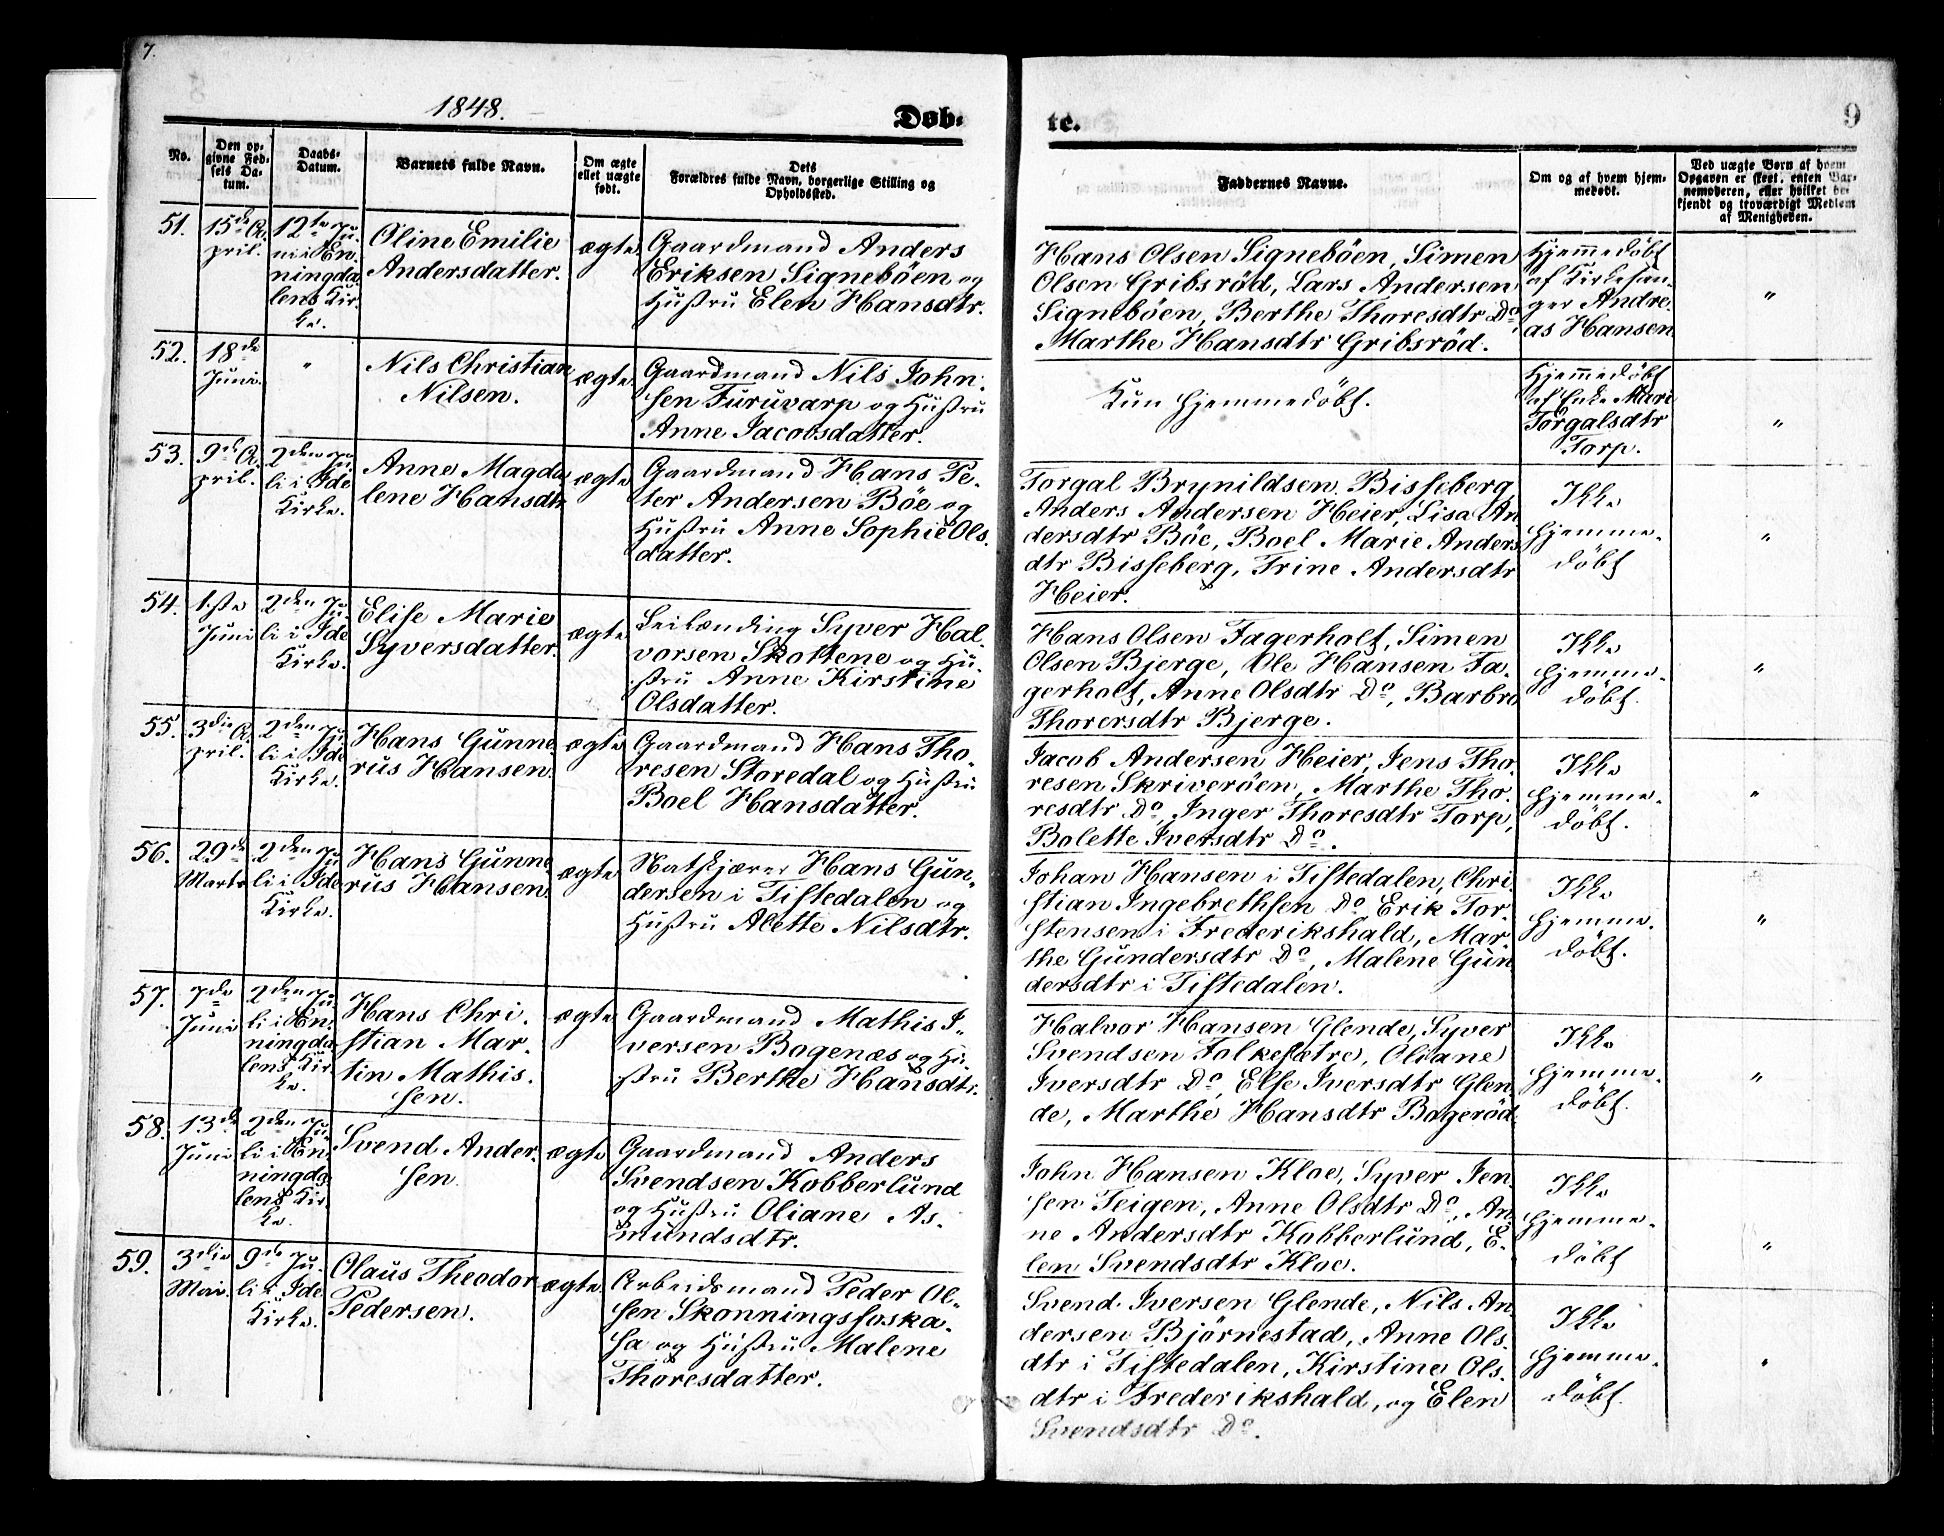 7.
1848.
Døb-
te.
9
No.
Den op-
givne Fød-
sels Da-
tum.
Daabs-
Datum.
Barnets fulde Navn.
Om ægte
ellet uægte
født.
Dets
Forældres fulde Navn, borgerlige Stilling og
Opholdssted.
Faddernes Navne.
Om og af hvem hjem-
medøbt.
Ved uægte Børn af hvem
Opgaven er skeet, enten Bar-
nemoderen, eller hvilket be-
kjendt og troværdigt Medlem
af Menigheden.
51.
15de A-
pril.
12te Ju-
ni i En-
ningda-
lens Kir-
ke.
Oline Emilie
Andersdatter.
ægte
Gaardmand Anders
Eriksen Signeböen og
Hustru Elen Hansdtr.
Hans Olsen Signeböen, Simen
Olsen Gribsröd, Lars Andersen
Signeböen, Berthe Thoresdtr Do,
Marthe Hansdtr Gribsröd.
Hjemmedöbt
af Kirkesan-
ger Andre-
as Hansen
"
52.
18de
Juni.
"
Nils Christian
Nilsen.
ægte
Gaardmand Nils John-
sen Furuvarp og Hustru
Anne Jacobsdatter.
Kun hjemmedöbt.
Hjemmedöbt
af Enke Mari
Torgalsdtr
Torp.
"
53.
9de A-
pril.
2den Ju-
li i Ide
Kirke.
Anne Magda
lene Hansdtr
ægte
Gaardmand Hans Pe-
ter Andersen Böe og
Hustru Anne Sophie Ols-
datter.
Torgal Brynildsen Bisseberg,
Anders Andersen Heier, Lisa An
dersdtr Böe, Boel Marie Anders
dtr Bisseberg, Trine Andersdtr
Heier.
Ikke
hjemme-
döbt
"
54.
1ste
Juni
2den Ju-
li i Ide
Kirke.
Elise Marie
Syversdatter.
ægte
Leilænding Syver Hal-
vorsen Skottene og Hu-
stru Anne Kirstine
Olsdatter.
Hans Olsen Fagerholt, Simen
Olsen Bjerge, Ole Hansen Fa-
gerholt, Anne Olsdtr Do, Barbro
Thorersdtr Bjerge.
Ikke
hjemme-
döbt.
"
55.
3die A-
pril.
2den Ju-
li i Ide
Kirke.
Hans Gunne-
rus Hansen.
ægte
Gaardmand Hans Tho-
resen Storedal og Hustru
Boel Hansdatter.
Jacob Andersen Heier, Jens Tho-
resen Skriveröen, Marthe Tho-
resdtr Do, Inger Thoresdtr Torp,
Bolette Iversdtr Do.
Ikke
hjemme-
döbt.
"
56.
29de
Marts
2den Ju-
li i Ide
Kirke.
Hans Gunne-
rus Hansen.
ægte
Hans Gun-
dersen i Tistedalen og
Hustru Alette Nilsdtr.
Johan Hansen i Tistedalen, Chri-
stian Ingebrethsen Do Erik Tor-
stensen i Frederikshald, Mar-
the Gundersdtr Do, Malene Gun
dersdtr i Tistedalen.
Ikke
hjemme-
döbt.
"
57.
7de
Juni
2den Ju-
li i En-
ningda-
lens Kir-
ke.
Hans Chri-
stian Mar-
tin Mathis-
sen.
ægte
Gaardmand Mathis I-
versen Bogenæs og Hu-
stru Berthe Hansdtr.
Halvor Hansen Glende, Syver
Svendsen Folkesætre, Oliane
Iversdtr Do, Else Iversdtr Glen-
de, Marthe Hansdtr Bogeröd.
Ikke
hjemme-
döbt.
"
58.
13de
Juni
2den Ju-
li i En-
ningda-
lens Kir-
ke.
Svend Ander-
sen.
ægte
Gaardmand Anders
Svendsen Kobberlund
og Hustru Oliane As-
mundsdtr.
John Hansen Kloe, Syver Jen-
sen Teigen, Anne Olsdtr Do, An-
ne Andersdtr Kobberlund, E-
len Svendsdtr Kloe.
Ikke
hjemme-
döbt
"
59.
3die
Mai
9de Ju-
li i Ide
Kirke.
Olaus Theodor
Pedersen.
ægte
Arbeidsmand Peder Ol-
sen Skonningsfoska-
sa og Hustru Malene
Thoresdatter.
Svend Iversen Glende, Nils An-
dersen Björnestad, Anne Ols-
dtr i Tistedalen, Kirstine Ols-
dtr i Frederikshald, og Elen
Svendsdtr Do.
Ikke
hjemme-
döbt.
"